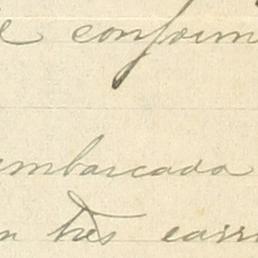 e conform
embarcada
n três carri